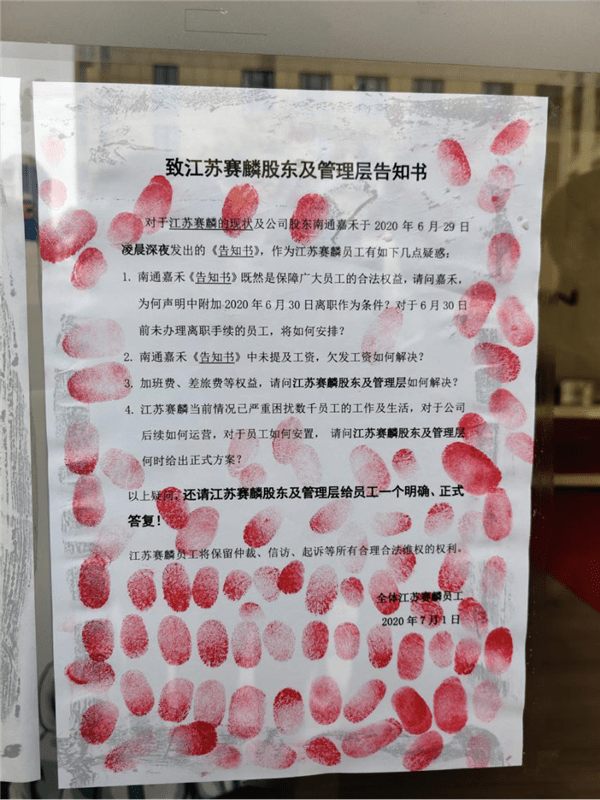 致江苏赛麟股东及管理层告知书
对于江苏赛麟的现状及公司股东南通嘉禾于 2020 年 6 月 29 日
凌晨深夜发出的《告知书》，作为江苏赛麟员工有如下几点疑惑：
1. 南通嘉禾《告知书》既然是保障广大员工的合法权益，请问嘉禾，
为何声明中附加 2020 年 6 月 30 日离职作为条件？对于 6 月 30 日
前未办理离职手续的员工，将如何安排？
2. 南通嘉禾《告知书》中未提及工资，欠发工资如何解决？
3. 加班费、差旅费等权益，请问江苏赛麟股东及管理层如何解决？
4. 江苏赛麟当前情况已严重困扰数千员工的工作及生活，对于公司
后续如何运营，对于员工如何安置， 请问江苏赛麟股东及管理层
何时给出正式方案？
以上疑问，还请江苏赛麟股东及管理层给员工一个明确、正式
答复！
江苏赛麟员工将保留仲裁、信访、起诉等所有合理合法维权的权利。
全体江苏赛麟员工
2020 年 7 月 1 日